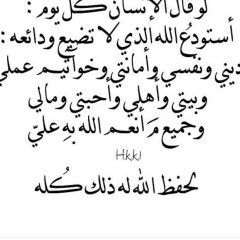 لو قال الإنسان كل يوم :
أستودع الله الذي لا تضيع ودائعه :
ديني ونفسي وأمانتي وخواتيم عملي
وبيتي وأهلي وأحبتي ومالي
وجميع مَ أنعم الله بهِ عليّ
Hkkl
لحفظ الله له ذلك كُله